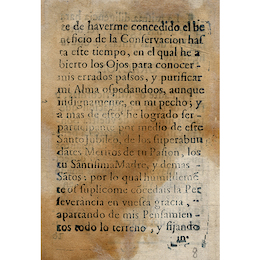 te de haverme concedido el be
neficio de la Conservacion has
ta este tiempo, en el qual he a
bierto los Ojos para conocer
mis errados passos, y purificar
mi Alma ospedandoos, aunque
indignamente, en mi pecho; y
a mas de esto, he logrado ser
participante por medio de este
Santo Jubileo, de los superabun
dates Meritos de tu Pasion, los
tu Santisima Madre, y demas
Sãtos; por lo qual humildeme
te os suplicome cõcedais la Per
severancia en vuestra gracia,
apartando de mis Pensamien-
tos todo lo terreno, y fijando
8